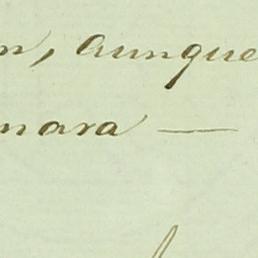 n, aunque
nara —